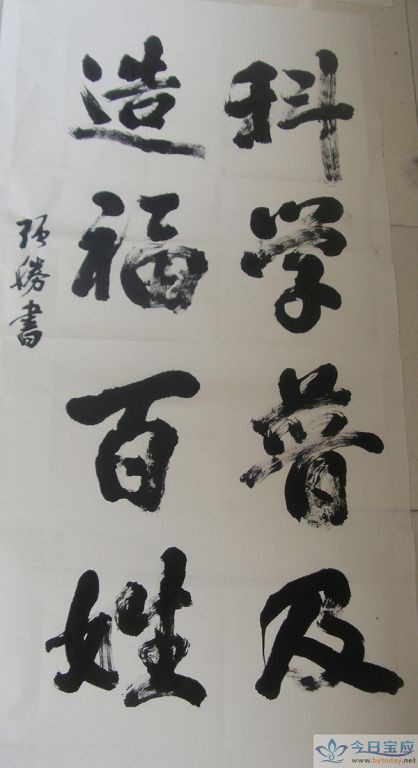 科学普及
造福百姓
强勝書
今日宝应
www.bytoday.net